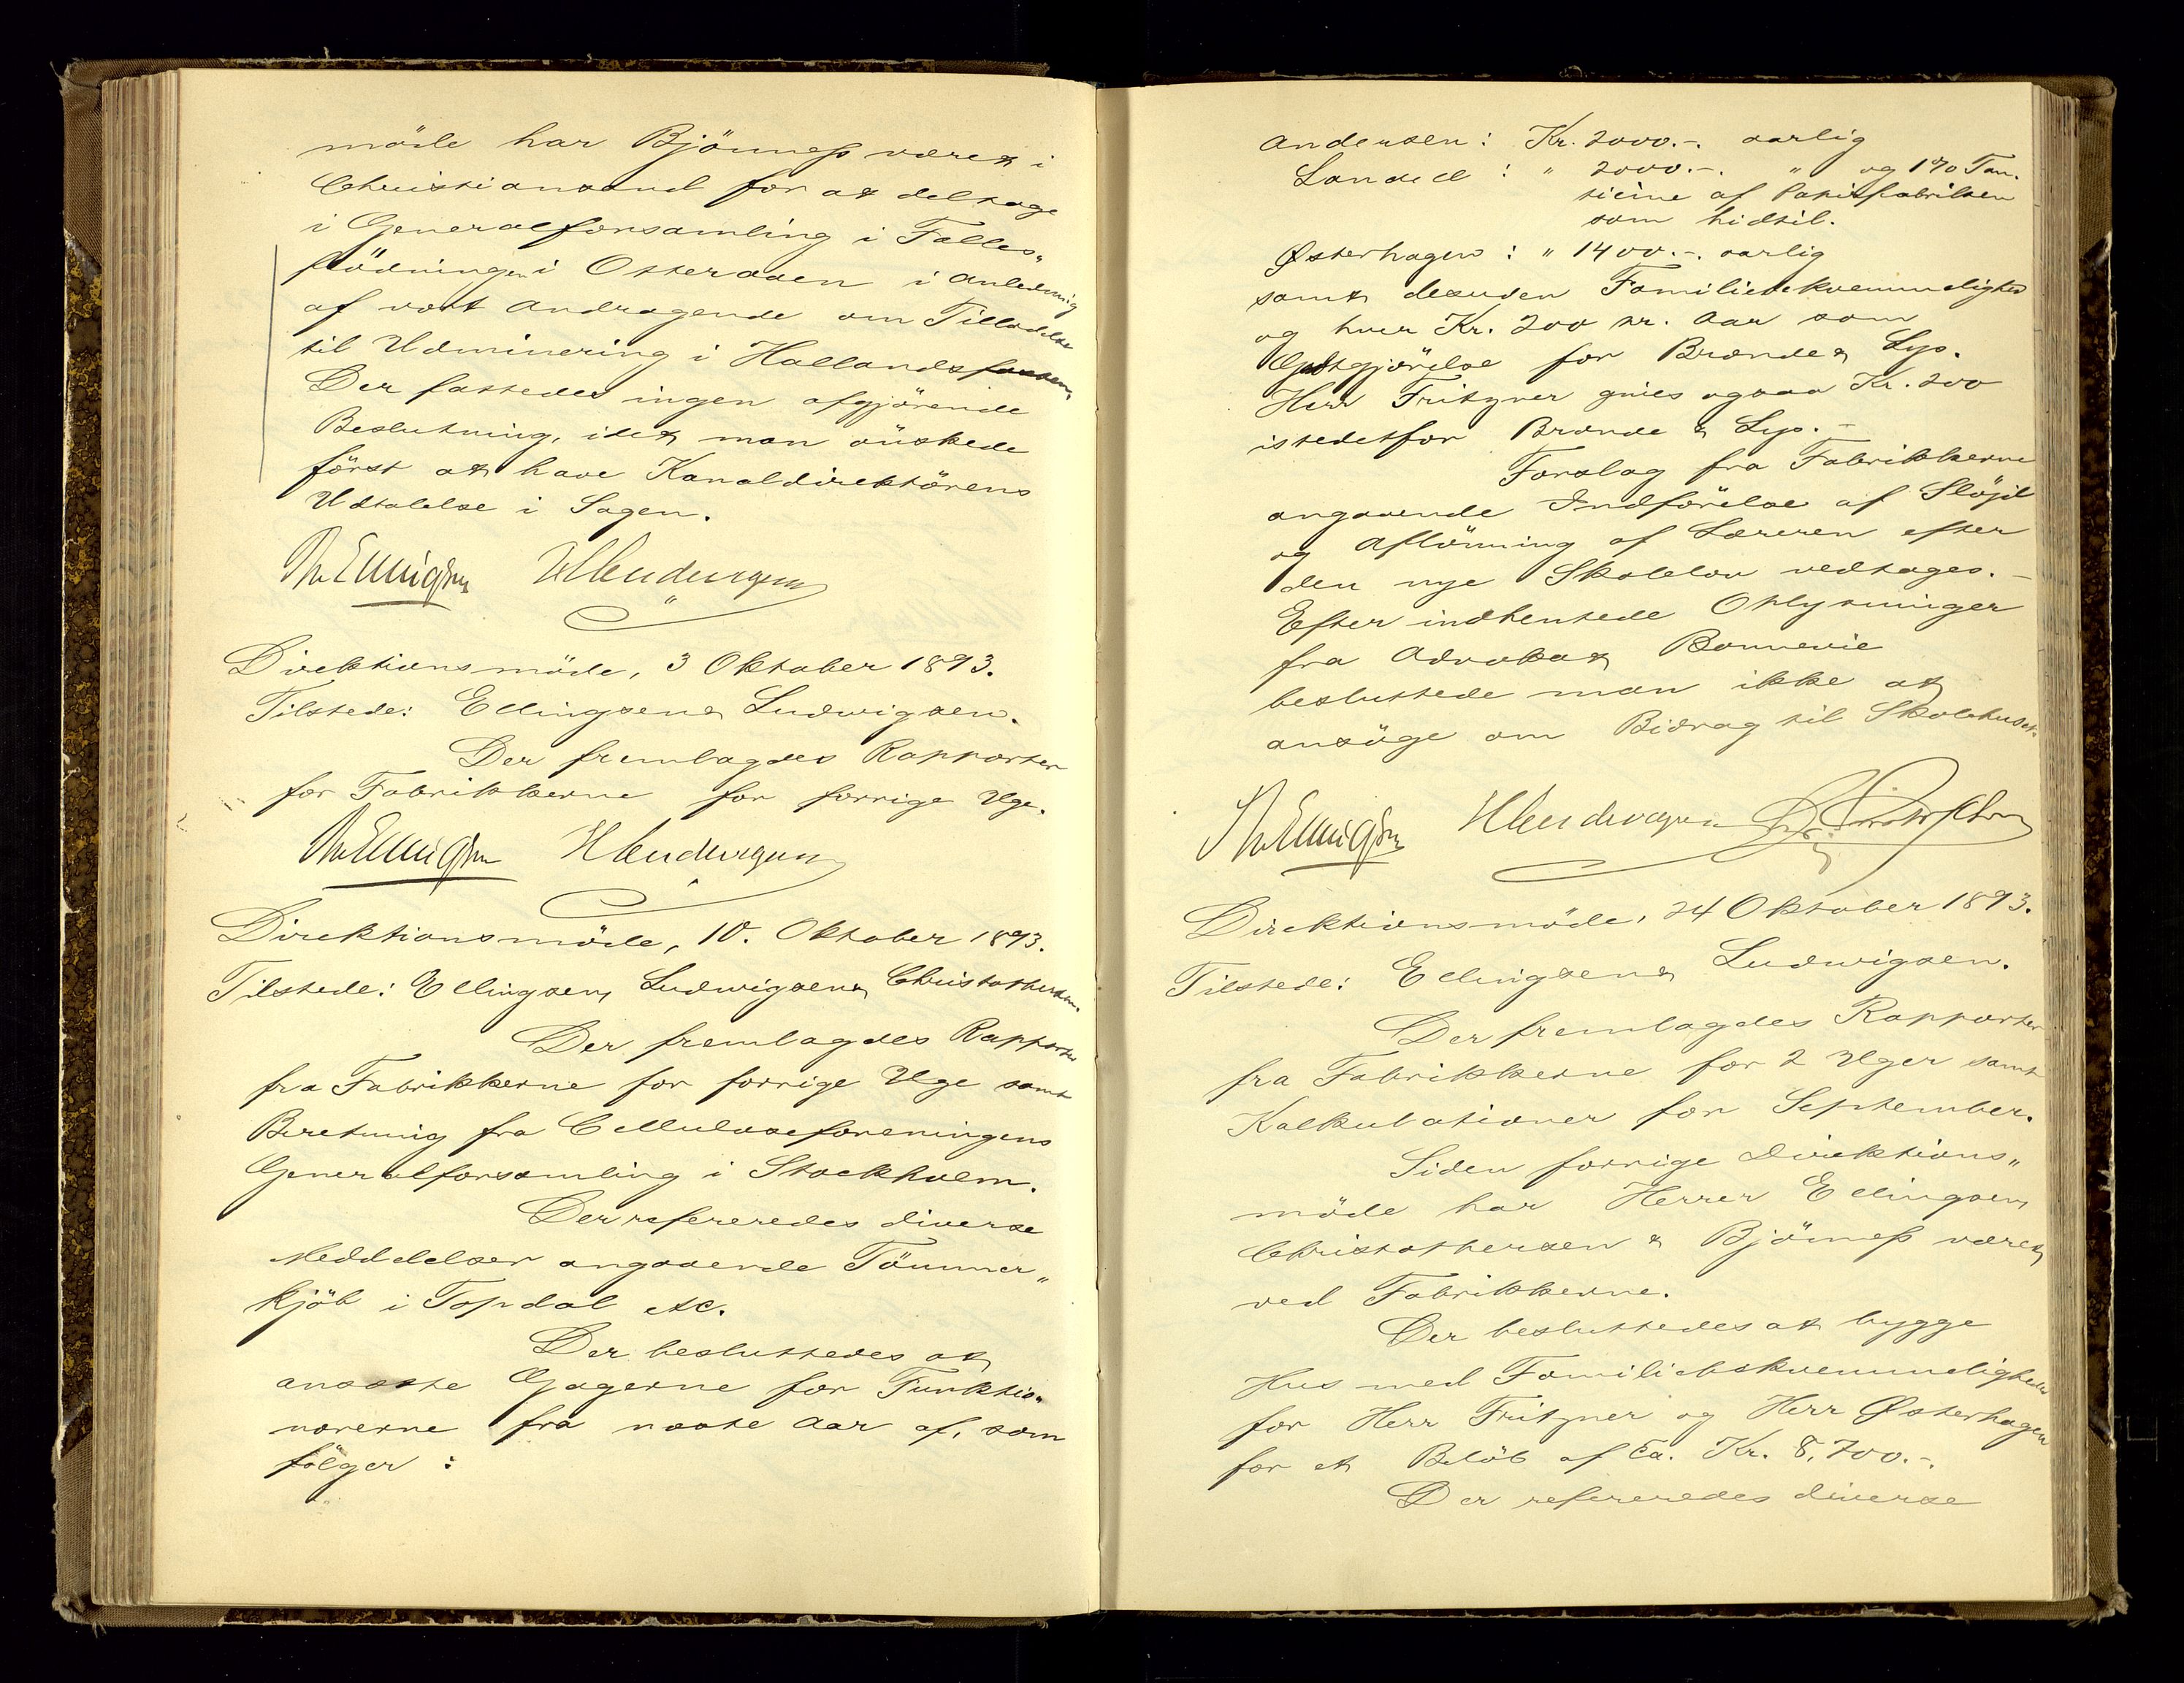 möde har Bjönness været i
Christiansand for at deltage
i Generalforsamling i Fælles„
flödningen i Otteraaen i Anledning
af vort Andragende om Tilladelse
til Udminering i Hallandsfossen,
Der fattedes ingen afgjörende
Beslutning, idet man önskede
först at have Kanaldirektörens
Udtalelse i Sagen.
Direktionsmöde, 3 Oktober 1893.
Tilstede: Ellingsen & Ludwigsen.
Der fremlagdes Rapporter
for Fabrikkerne for forrige Uge.
Direktionsmöde, 10. Oktober 1893.
Tilstede: Ellingsen, Ludwigsen & Christophersen.
Der fremlagdes Rapporter
fra Fabrikkerne for forrige Uge samt
Beretning fra Celluloseforeningens
Generalforsamling i Stockholm.
Der refereredes diverse
Meddelelser angaaende Tömmer„
kjöb i Topdal etc.
Der besluttedes at
ansætte Gagerne for Funktio„
nærerne fra næste Aar af, som
fölger:
Andersen: Kr. 2000.-. aarlig
Landell : " 2000.-. " og 1% Tan„
tieme af Papirfabriken
som hidtil.
Østerhagen: " 1400.-. aarlig
samt desuden Familiebekvemmelighed
og hver Kr. 200 pr. Aar som
Godtgjörelse for Brænde & Lys.
Herr Fritzner gives ogsaa Kr. 200
istedetfor Brænde & Lys.-
Forslag fra Fabrikkerne
angaaende Indförelse af Slöjd
og Aflönning af Læreren efter
den nye Skolelov vedtages.-
Efter indhentede Oplysninger
fra Advokat Bonnevie
besluttede man ikke at
ansöge om Bidrag til Skolehuset.
Direktionsmöde, 24 Oktober 1893.
Tilstede: Ellingsen & Ludwigsen.
Der fremlagdes Rapporter
fra Fabrikkerne for 2 Uger samt
Kalkulationer for September.
Siden forrige Direktions„
möde har Herrer Ellingsen,
Christophersen & Bjönness været
ved Fabrikkerne.
Der besluttedes at bygge
Hus med Familiebekvemmeligheder
for Herr Fritzner og Herr Østerhagen
for et Belöb af Ca. Kr. 8,700.-.
Der refereredes diverse